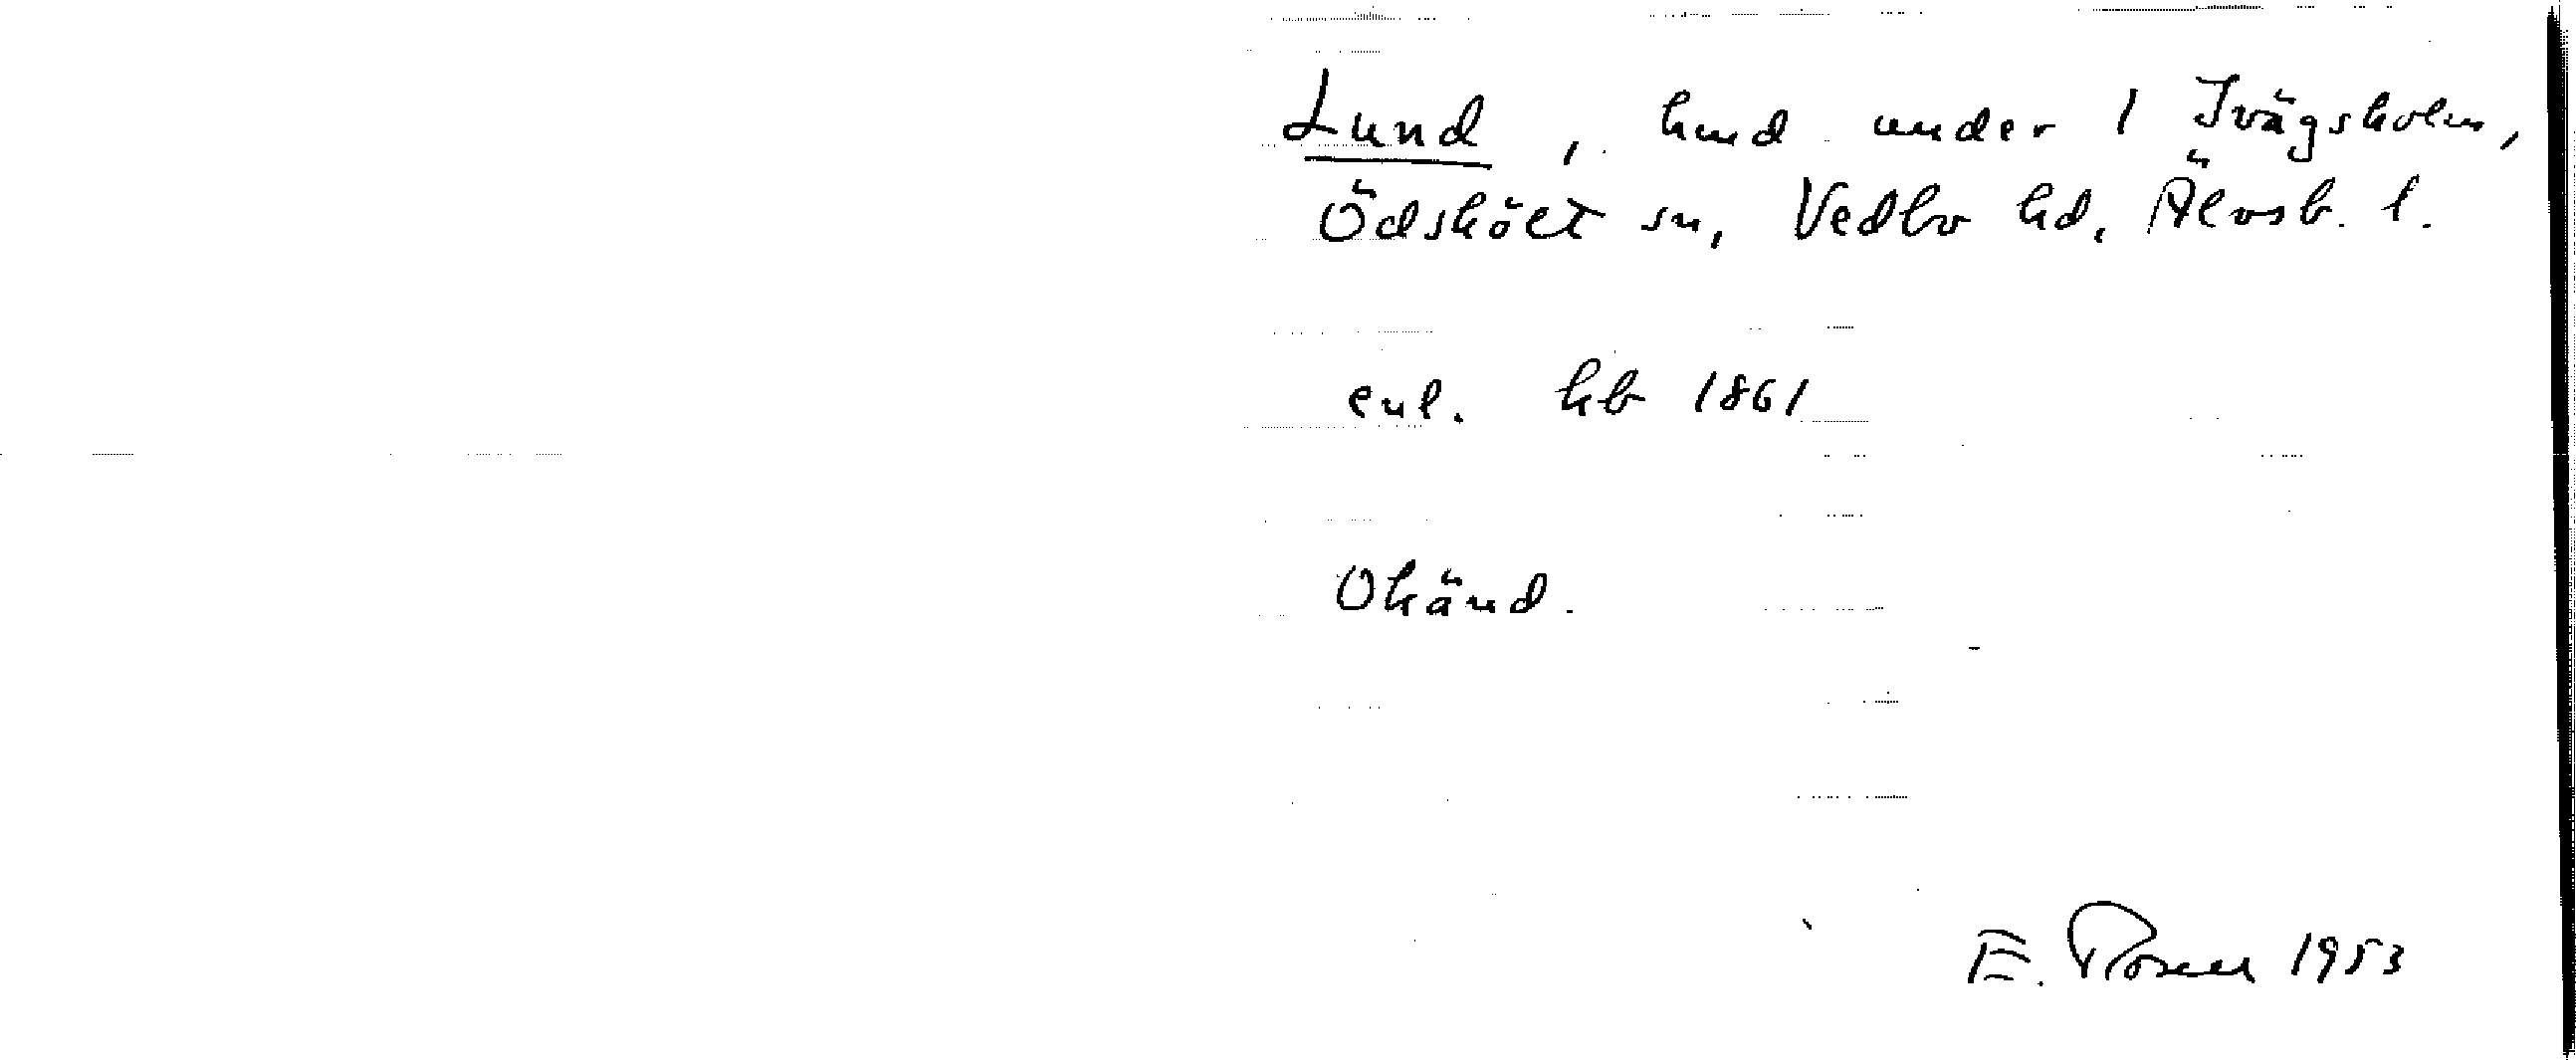 Lund, hmd under 1 Ivägsholm,
Ödskölt sn, Vedbo hd, Älvsb. l.
enl. hb 1861
Okänd.
E. Rosell 1953